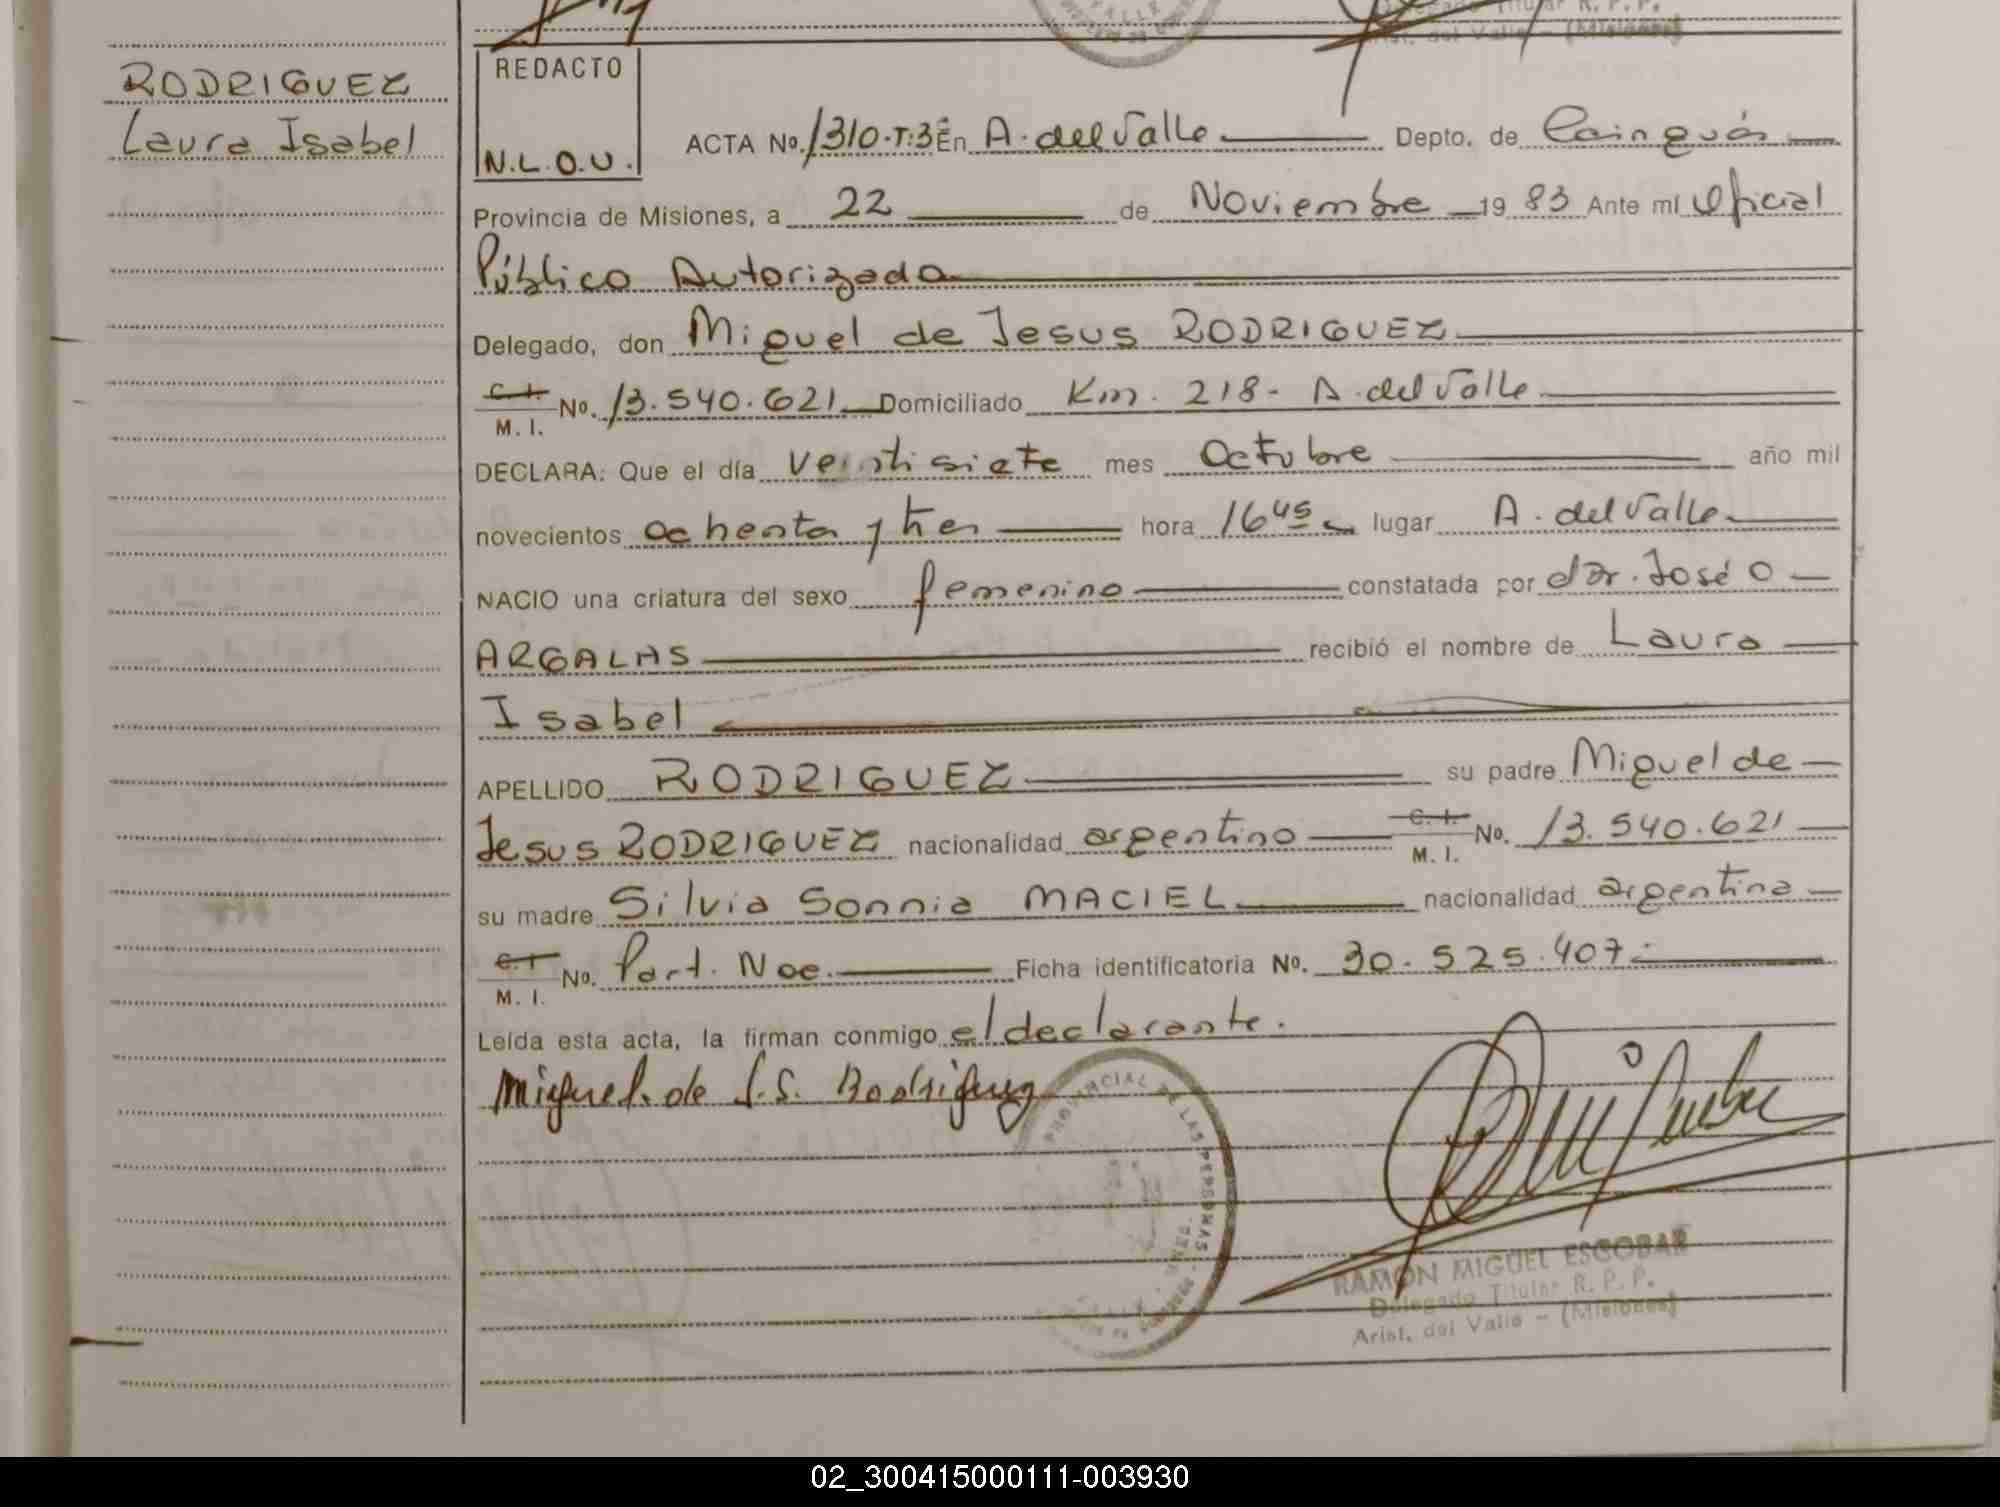 Delegado Titular R. P. P.
Arist. del Valle - (Misiones)
RODRIGUEZ
Laura Isabel
REDACTO
N.L.O.U.
ACTA Nº. 1310-T:3 En A. del Valle Depto. de Cainguás
Provincia de Misiones, a 22 de Noviembre 19 83 Ante mí Oficial
Público Autorizado
Delegado, don Miguel de Jesus RODRIGUEZ
C. I.
M. I. Nº. 13.540.621 Domiciliado Km. 218- A. del Valle
DECLARA: Que el día veintisiete mes Octubre año mil
novecientos ochenta y tres hora 16 45 lugar A. del Valle
NACIO una criatura del sexo femenino constatada por dr. José O
ARGALAS recibió el nombre de Laura
Isabel
APELLIDO RODRIGUEZ su padre Miguel de
Jesus RODRIGUEZ nacionalidad argentino C. I. M. I. Nº. 13.540.621
su madre Silvia Sonnia MACIEL nacionalidad argentina
C. I.
M. I. Nº. Part. Nac. Ficha identificatoria Nº. 30.525.407.
Leída esta acta, la firman conmigo el declarante.
Miguel de J.S. Rodriguez
PROVINCIAL DE LAS PERSONAS
RAMON MIGUEL ESCOBAR
Delegado Titular R. P. P.
Arist. del Valle - (Misiones)
02_300415000111-003930